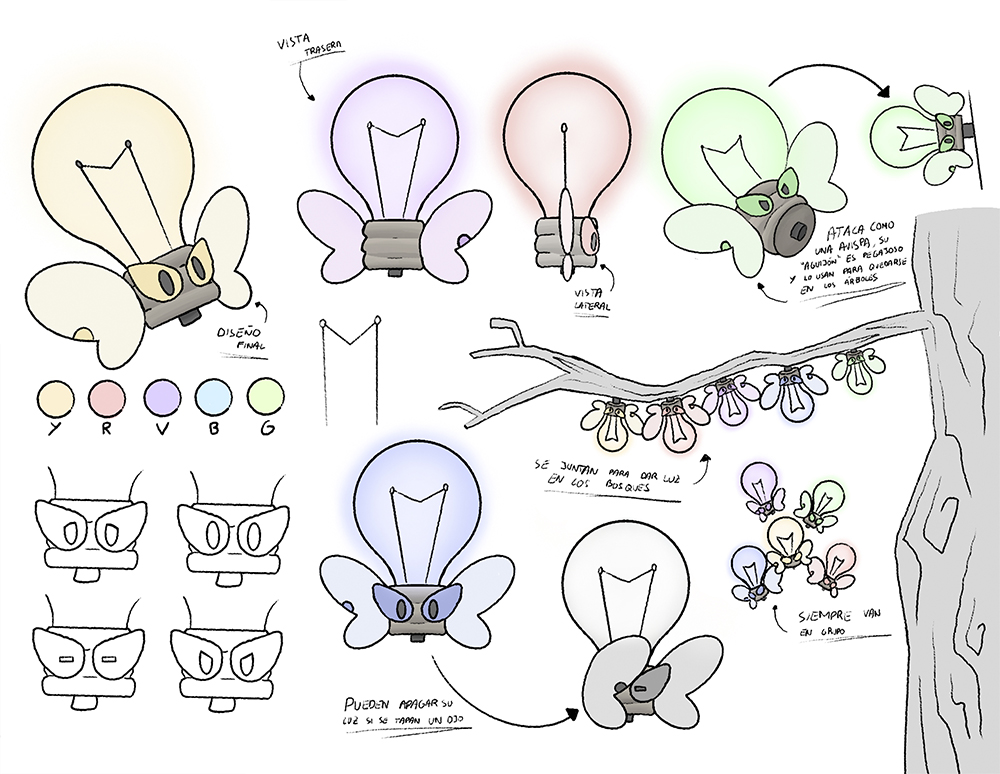 VISTA
TRASERA
DISEÑO
FINAL
VISTA
LATERAL
ATACA COMO
UNA AVISPA, SU
"AGUIJÓN" ES PEGAJOSO
Y LO USAN PARA QUEDARSE
EN LOS ÁRBOLES
Y R V B G
SE JUNTAN PARA DAR LUZ
EN LOS BOSQUES
SIEMPRE VAN
EN GRUPO
PUEDEN APAGAR SU
LUZ SI SE TAPAN UN OJO